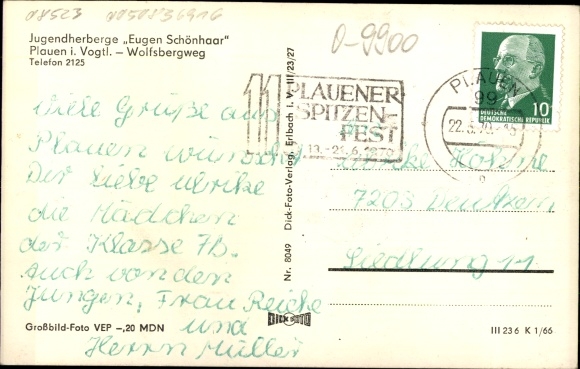 08523 0050836916
0-9900
Jugendherberge „Eugen Schönhaar"
Plauen i. Vogtl. – Wolfsbergweg
Telefon 2125
11 PLAUENER
SPITZEN-
FEST
1970
PLAUEN
99
22.5.70
DEUTSCHE
DEMOKRATISCHE REPUBLIK
10
Viele Grüße aus
Plauen wünschen
Dir liebe Ulrike
die Mädchen
der Klasse 7b.
Auch von den
Jungen, Frau Reiche
und
Herrn Müller
Ulrike
7203 Deutzen
Siedlung 11
Nr. 8049 Dick-Foto-Verlag, Erlbach i. V. III/23/27
DICK FOTO
Großbild-Foto VEP –,20 MDN
III 23 6 K 1/66